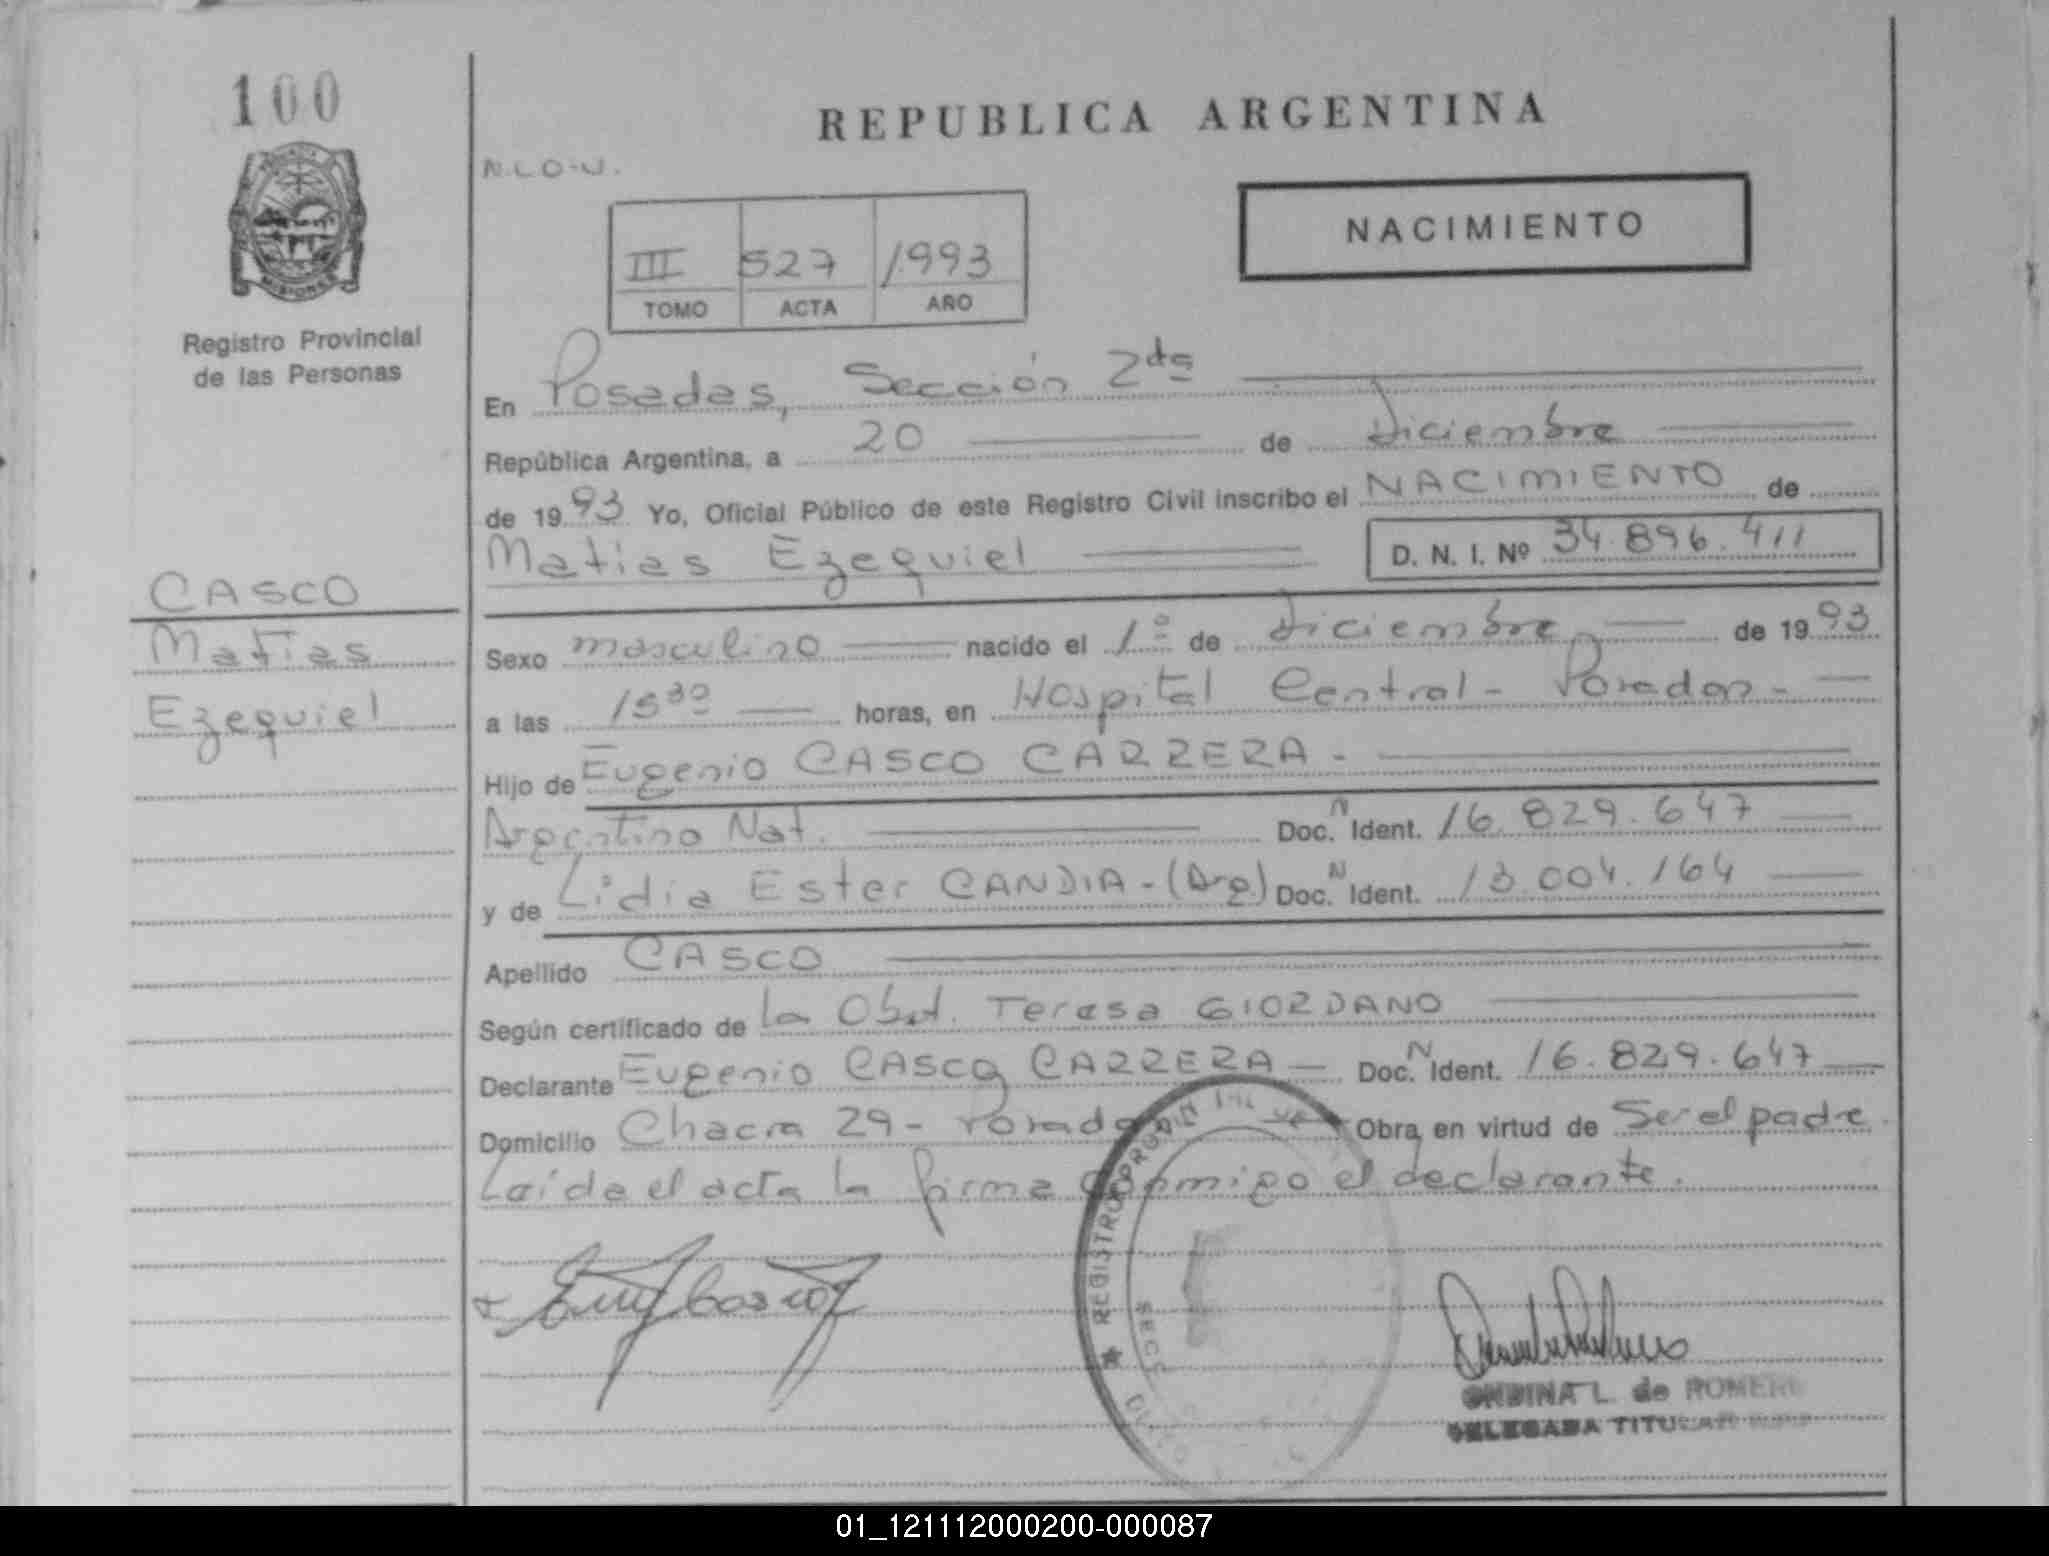 100
REPUBLICA ARGENTINA
N.L.O-U.
NACIMIENTO
III 527 1993
TOMO ACTA AÑO
MISIONES
Registro Provincial
de las Personas
En Posadas, Sección 2da
República Argentina, a 20 de Diciembre
de 1993 Yo, Oficial Público de este Registro Civil inscribo el NACIMIENTO de
Matias Ezequiel D. N. I. Nº 34.896.411
CASCO
Matias
Ezequiel
Sexo masculino nacido el 1º de diciembre de 1993
a las 15 30 horas, en Hospital Central - Posadas -
Hijo de Eugenio CASCO CARRERA -
Argentino Nat. Doc. N Ident. 16.829.647
y de Lidia Ester CANDIA - (Arg) Doc. N Ident. 13.004.164
Apellido CASCO
Según certificado de la Obst. Teresa GIORDANO
Declarante Eugenio CASCO CARRERA Doc. N Ident. 16.829.647
Domicilio Chacra 29 - Posadas Obra en virtud de Ser el padre.
Laída el acta la firma conmigo el declarante.
REGISTRO PROVINCIAL
SECC
ONDINA L. de ROMERO
DELEGADA TITULAR
01_121112000200-000087